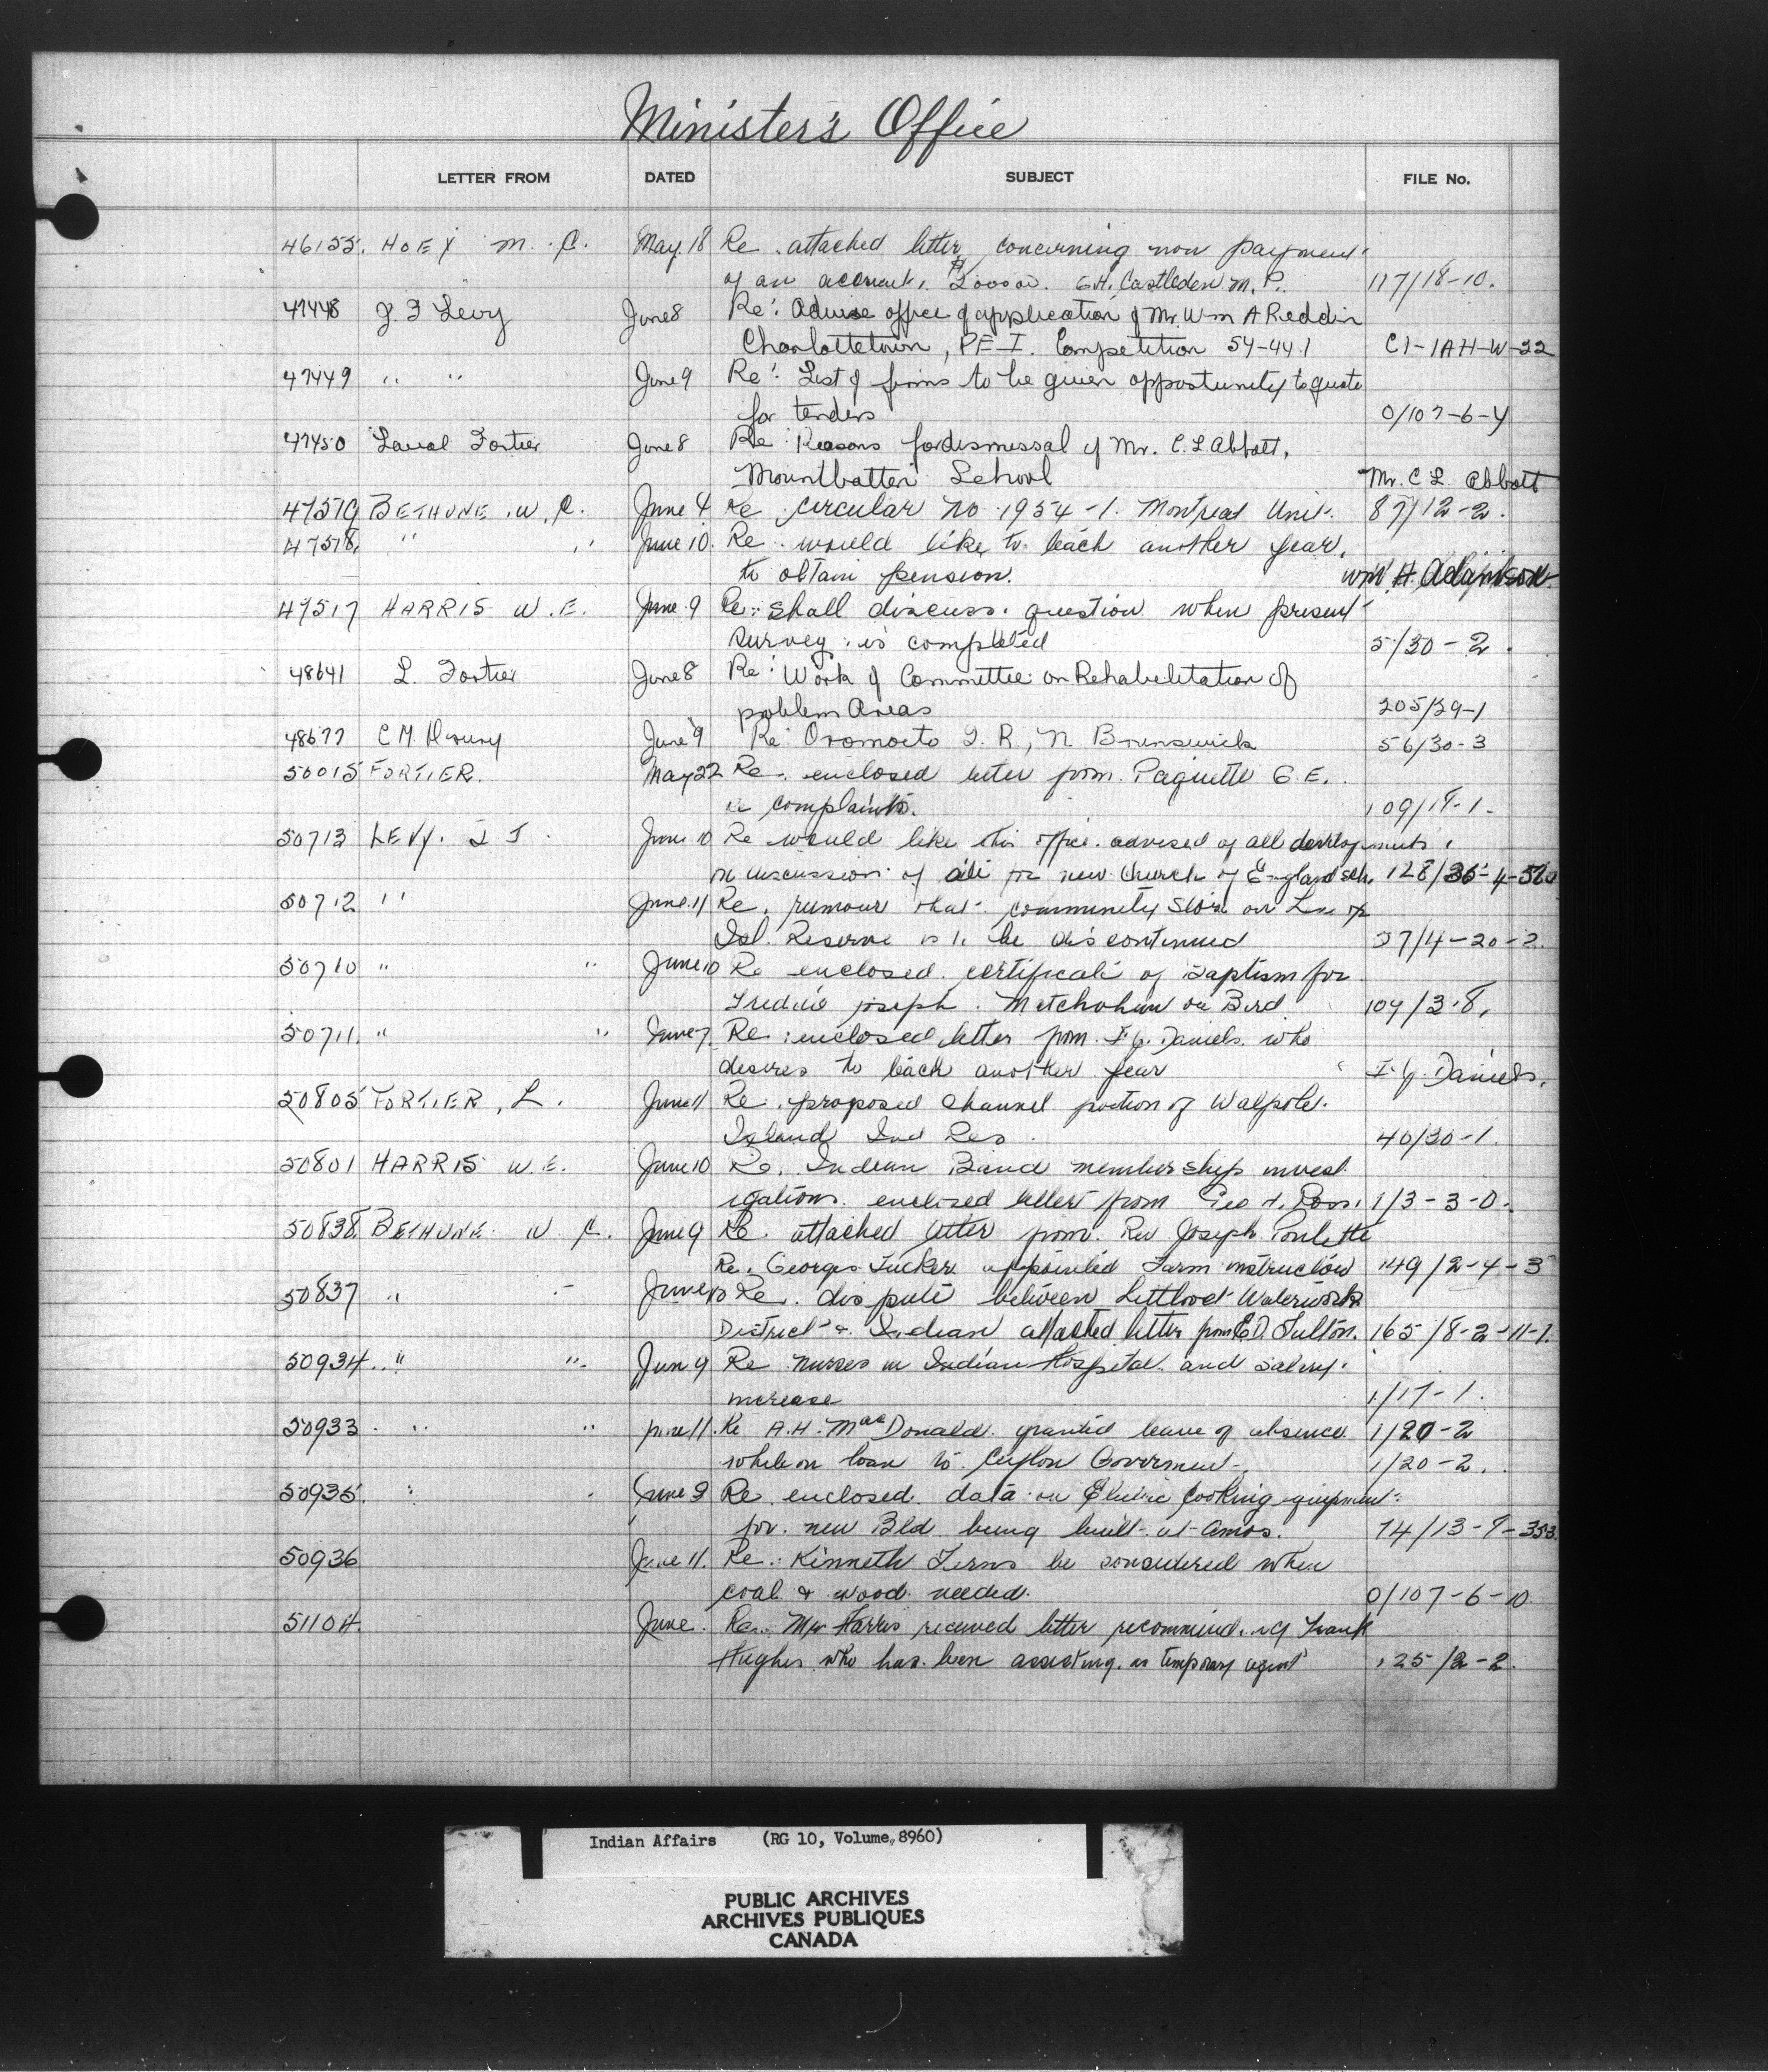 Minister's Office
LETTER FROM DATED SUBJECT FILE No.
46155. HOEY M. C. May. 18 Re. attached letter concerning non payment
of an account. G.H. Castleden M.P. 117/18-10.
47448 J. F Levy June 8 Re: Advise office of application of Mr. Wm A Reddin
Charlottetown, PE-I. Competition 54-441 C1-1AH-W-22
47449 " " June 9 Re: List of firms to be given opportunity to quote
for tenders 0/107-6-4
47450 Laval Fortier June 8 Re: Reasons for dismissal of Mr. C. L Abbott,
Mountbatten School Mr. C L Abbott
47519 BETHUNE. W. C. June 4 Re circular No. 1954-1. Montreal Unit. 87/12-2.
47518, " " June 10. Re. would like to teach another year,
to obtain pension. Wm. H. Adamson
47517 HARRIS W.E. June 9 Re: shall discuss question when present
survey is completed 5/30-2.
48641 L. Fortier June 8 Re: Work of Committee on Rehabilitation of
problem Areas 205/29-1
48677 C M. Drury June 9 Re: Oromocto I. R., N Brunswick 56/30-3
50015 FORTIER. May 22 Re. enclosed letter from. Paquette G.E.
complaints. 109/19-1.
50713 LEVY. J J. June 10 Re would like this office. advised of all developments
on discussion of site for new church of England sch. 128/36-4-520
50712 " June. 11 Re. rumour that community store on
Isl. Reserve is to be discontinued 37/4-20-2.
50710 " " June 10 Re enclosed. certificate of Baptism for
Joseph. or Bird 109/3-8.
50711. " " June 7. Re: enclosed letter from. I. J. Daniels. who
desires to teach another year I. J. Daniels.
50805 FORTIER, L. June 11 Re. proposed channel portion of Walpole.
Island Ind Res. 40/30-1.
50801 HARRIS W.E. June 10 Re. Indian Band membership invest
igations. enclosed letter from Geo H. 1/3-3-0.
50838. BETHUNE. W. C. June 9 Re. attached letter from. Rev Joseph
Re. Georges Tucker appointed Farm instructor 149/2-4-3
50837 " " June 10 Re. dispute between Lillooet Waterworks
District & Indian attached letter from E.D. Fulton. 165/8-2-11-1.
50934. " " Jun 9 Re nurses in Indian Hospital. and salary.
increase 1/17-1.
50933. " " June 11. Re A.H. MacDonald. granted leave of absence 1/20-2
while on loan to. Ceylon Government. 1/20-2.
50935. " June 9 Re. enclosed data on Electric Cooking equipment
for. new Bld. being built at Amos. 74/13-9-353.
50936 June 11. Re: Kenneth Ferns be considered when
coal & wood needed. 0/107-6-10
51104. June. Re. Mr Harris received letter recommending Frank
Hughes who has been assisting as temporary agent 125/2-2.
Indian Affairs (RG 10, Volume 8960)
PUBLIC ARCHIVES
ARCHIVES PUBLIQUES
CANADA